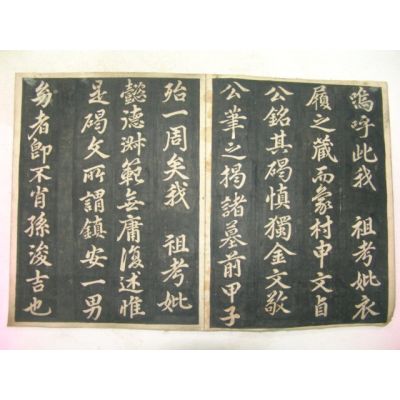 嗚呼此我 祖考妣衣
履之藏而象村申文貞
公銘其碣慎獨金文敬
公筆之揭諸墓前甲子
殆一周矣我 祖考妣
懿德淑範無庸復述惟
是碣文所謂鎮安一男
者即不肖孫浚吉也